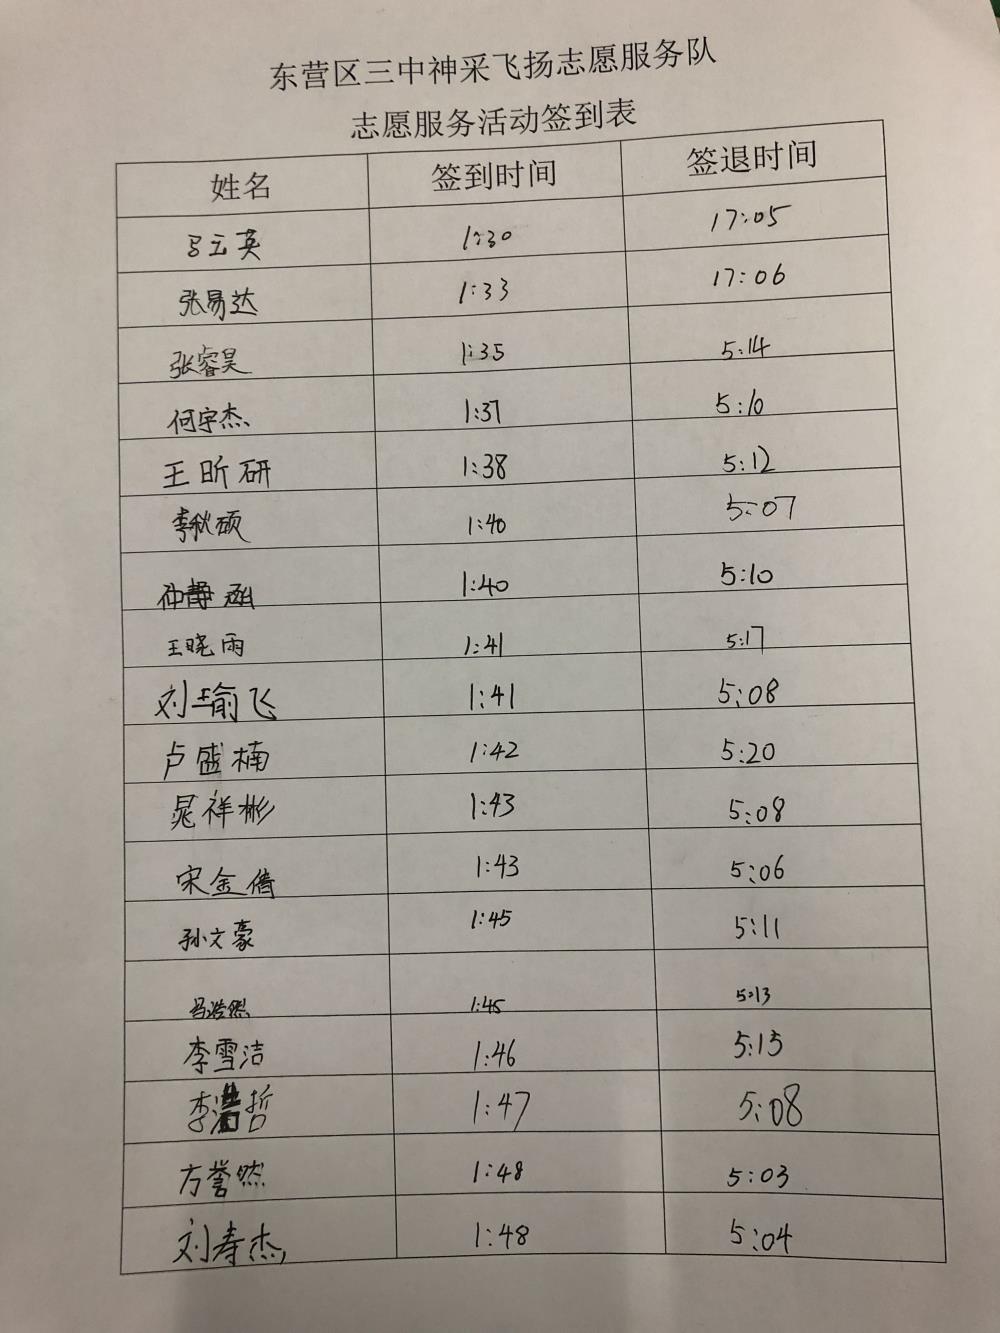 东营区三中神采飞扬志愿服务队
志愿服务活动签到表
姓名 签到时间 签退时间
马云英 1:30 17:05
张易达 1:33 17:06
张睿昊 1:35 5:14
何宇杰 1:37 5:10
王昕研 1:38 5:12
李秋硕 1:40 5:07
仲静涵 1:40 5:10
王晓雨 1:41 5:17
刘瑜飞 1:41 5:08
卢盛楠 1:42 5:20
晁祥彬 1:43 5:08
宋金倩 1:43 5:06
孙文豪 1:45 5:11
马浩然 1:45 5:13
李雪洁 1:46 5:15
李浩哲 1:47 5:08
方誉然 1:48 5:03
刘寿杰 1:48 5:04